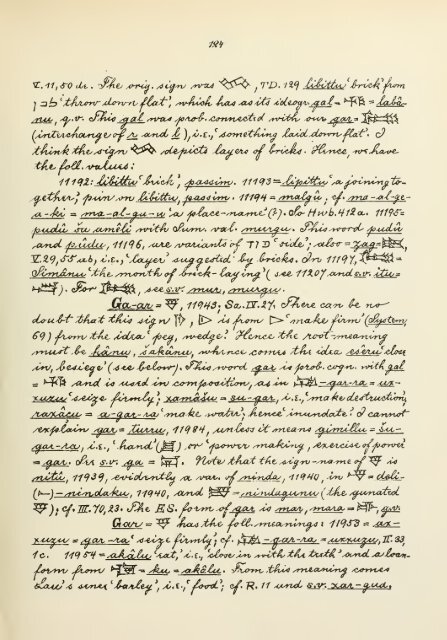 124
V. 11, 50 de. The orig. sign was , TD. 129 libittu 'brick' from
'throw down flat', which has as its ideogr. gal = = labâ-
nu, q.v. This gal was prob. connected with our gar =
(interchange of r and l), i.e., 'something laid down flat'. I
think the sign depicts layers of bricks. Hence, we have
the foll. values:
11192: libittu 'brick', passim. 11193 = lipittu 'a joining to-
gether', pun on libittu, passim. 11194 = malgû; cf. ma-al-ge-
a-ki = ma-al-gu-u 'a place-name' (?). So Hwb. 412a. 11195 =
pudû ša amêli with Sum. val. murgu. This word pudû
and pûdu, 11196, are variants of 'side'; also = zag =
V. 29, 53 ab, i.e., 'layer' suggested by bricks. In 11197,
Simânu 'the month of brick-laying' (see 11207 and s.v. itu =
). For , see s.v. mur, murgu.
Ga-ar = , 11943; Sa. IV. 27. There can be no
doubt that this sign , is from 'make firm' (System,
69) from the idea 'peg, wedge.' Hence the root-meaning
must be kânu, šakânu, whence comes the idea esêru 'close
in, besiege' (see below). This word gar is prob. cogn. with gal
= and is used in composition, as in -gar-ra = ux-
xuzu 'seize firmly'; xamâšu = su-gar, i.e., 'make destruction';
raxâçu = a-gar-ra 'make water'; hence 'inundate'. I cannot
explain gar = turru, 11984, unless it means gimillu = šu-
gar-ra, i.e., 'hand' ( ) or 'power making, exercise of power'
= gar. See s.v. ga = . Note that the sign-name of is
nitû, 11939, evidently a var. of ninda, 11940, in = dali-
( )-nindaku, 11940, and = nindagunu (the gunated
); cf. III. 70, 23. The E.S. form of gar is mar, mara = , q.v.
Gar = has the foll. meanings: 11953 = ax-
xuzu = gar-ra 'seize firmly'; cf. -gar-ra = uxxuzu, II. 33,
1c. 11954 = akâlu 'eat', i.e., 'close in with the teeth' and a loan-
form from = ku = akâlu. From this meaning comes
'barley', i.e., 'food'; cf. R. 11 and s.v. xar-gud,